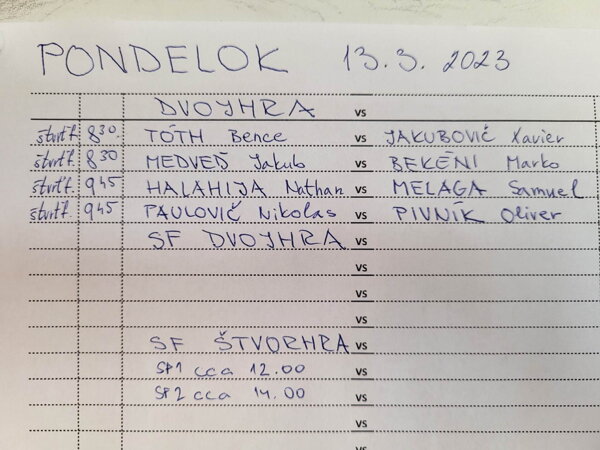 PONDELOK 13.3. 2023
DVOJHRA vs
štvrťf. 8³⁰ TÓTH Bence vs JAKUBOVIČ Xavier
štvrťf. 8³⁰ MEDVEĎ Jakub vs BEKÉNI Marko
štvrťf. 9⁴⁵ HALAHIJA Nathan vs MELAGA Samuel
štvrťf. 9⁴⁵ PAULOVIČ Nikolas vs PIVNÍK Oliver
SF DVOJHRA vs
vs
vs
vs
SF ŠTVORHRA vs
SP1 cca 12.00 vs
SP2 cca 14.00 vs
vs
vs